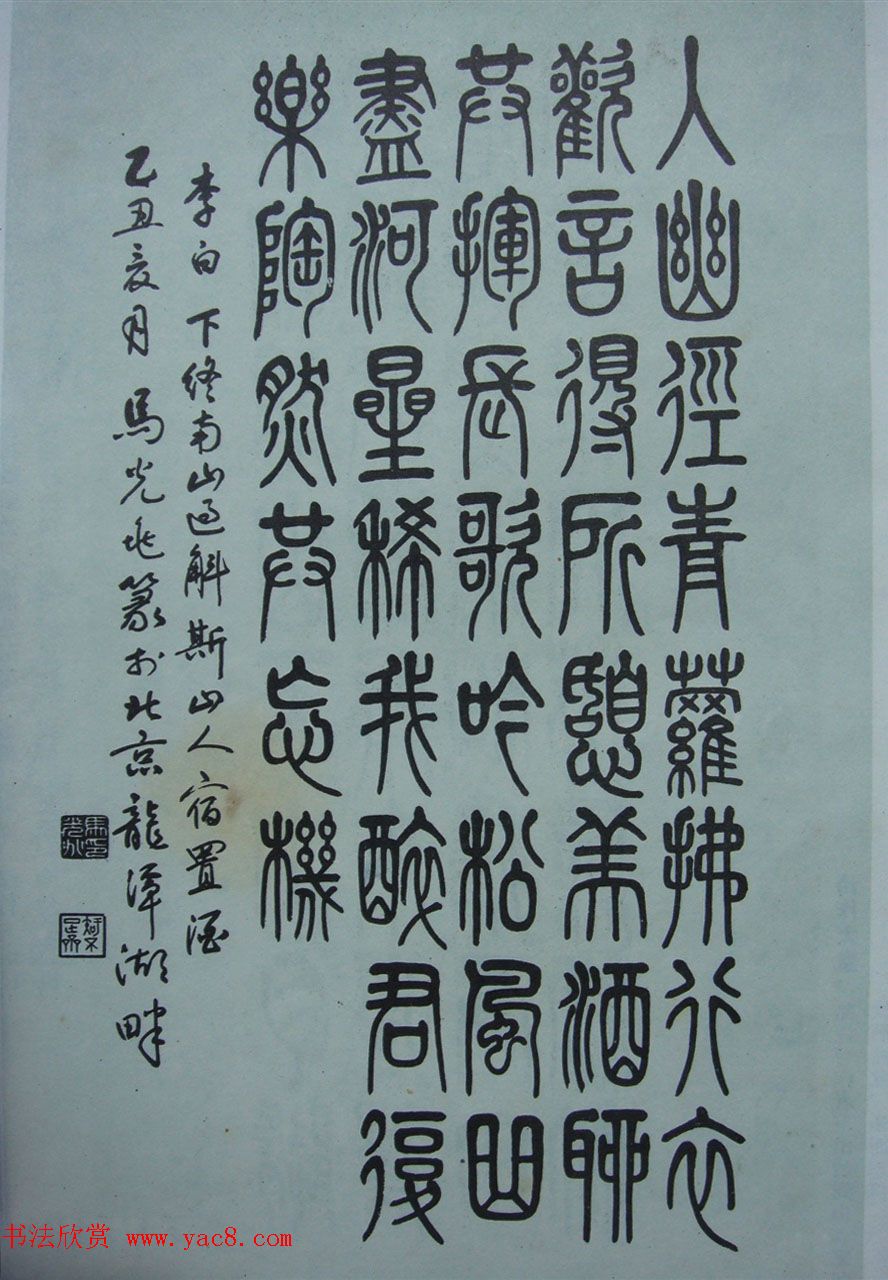 入幽徑青蘿拂行衣
歡言得所憩美酒聊
共揮長歌吟松風曲
盡河星稀我醉君復
樂陶然共忘機
李白 下終南山過斛斯山人宿置酒
乙丑亥月 馬光兆篆於北京龍潭湖畔
书法欣赏 www.yac8.com